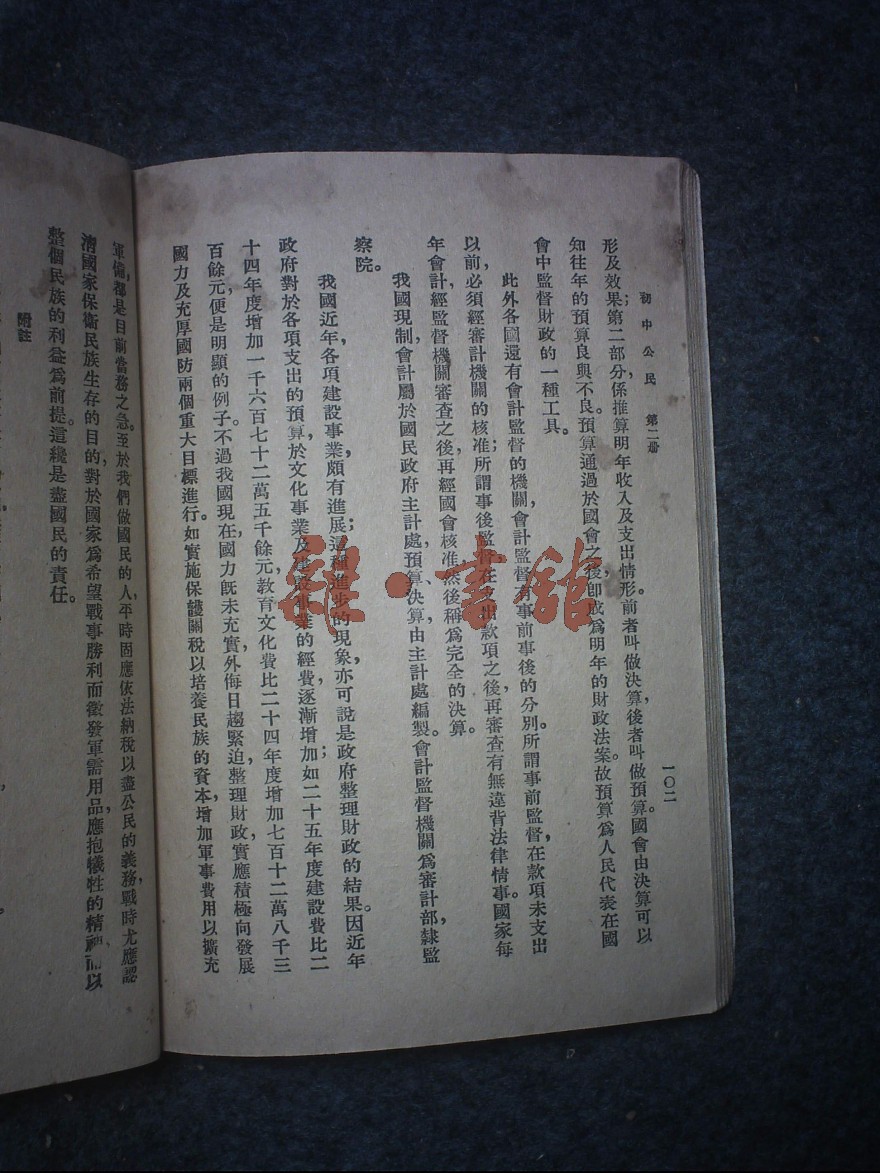 初中公民 第二册
一〇二
形及效果;第二部分係推算明年收入及支出情形。前者叫做決算,後者叫做預算。國會由決算可以
知往年的預算良與不良。預算通過於國會之後卽成爲明年的財政法案。故預算爲人民代表在國
會中監督財政的一種工具。
此外各國還有會計監督的機關。會計監督有事前事後的分別。所謂事前監督,在款項未支出
以前,必須經審計機關的核准;所謂事後監督,在支出款項之後,再審查有無違背法律情事。國家每
年會計經監督機關審查之後,再經國會核准,然後稱爲完全的決算。
我國現制會計屬於國民政府主計處,預算、決算由主計處編製。會計監督機關爲審計部,隸監
察院。
我國近年各項建設事業,頗有進展;這種進步的現象,亦可說是政府整理財政的結果。因近年
政府對於各項支出的預算,於文化事業及建設事業的經費逐漸增加;如二十五年度建設費比二
十四年度增加一千六百七十二萬五千餘元,教育文化費比二十四年度增加七百十二萬八千三
百餘元,便是明顯的例子。不過我國現在,國力旣未充實,外侮日趨緊迫,整理財政,實應積極向發展
國力及充厚國防兩個重大目標進行。如實施保護關稅以培養民族的資本,增加軍事費用以擴充
軍備,都是目前當務之急。至於我們做國民的人,平時固應依法納稅,以盡公民的義務,戰時尤應認
清國家保衛民族生存的目的,對於國家爲希望戰事勝利而徵發軍需用品,應抱犧牲的精神,而以
整個民族的利益爲前提。這纔是盡國民的責任。
附註
雜·書館